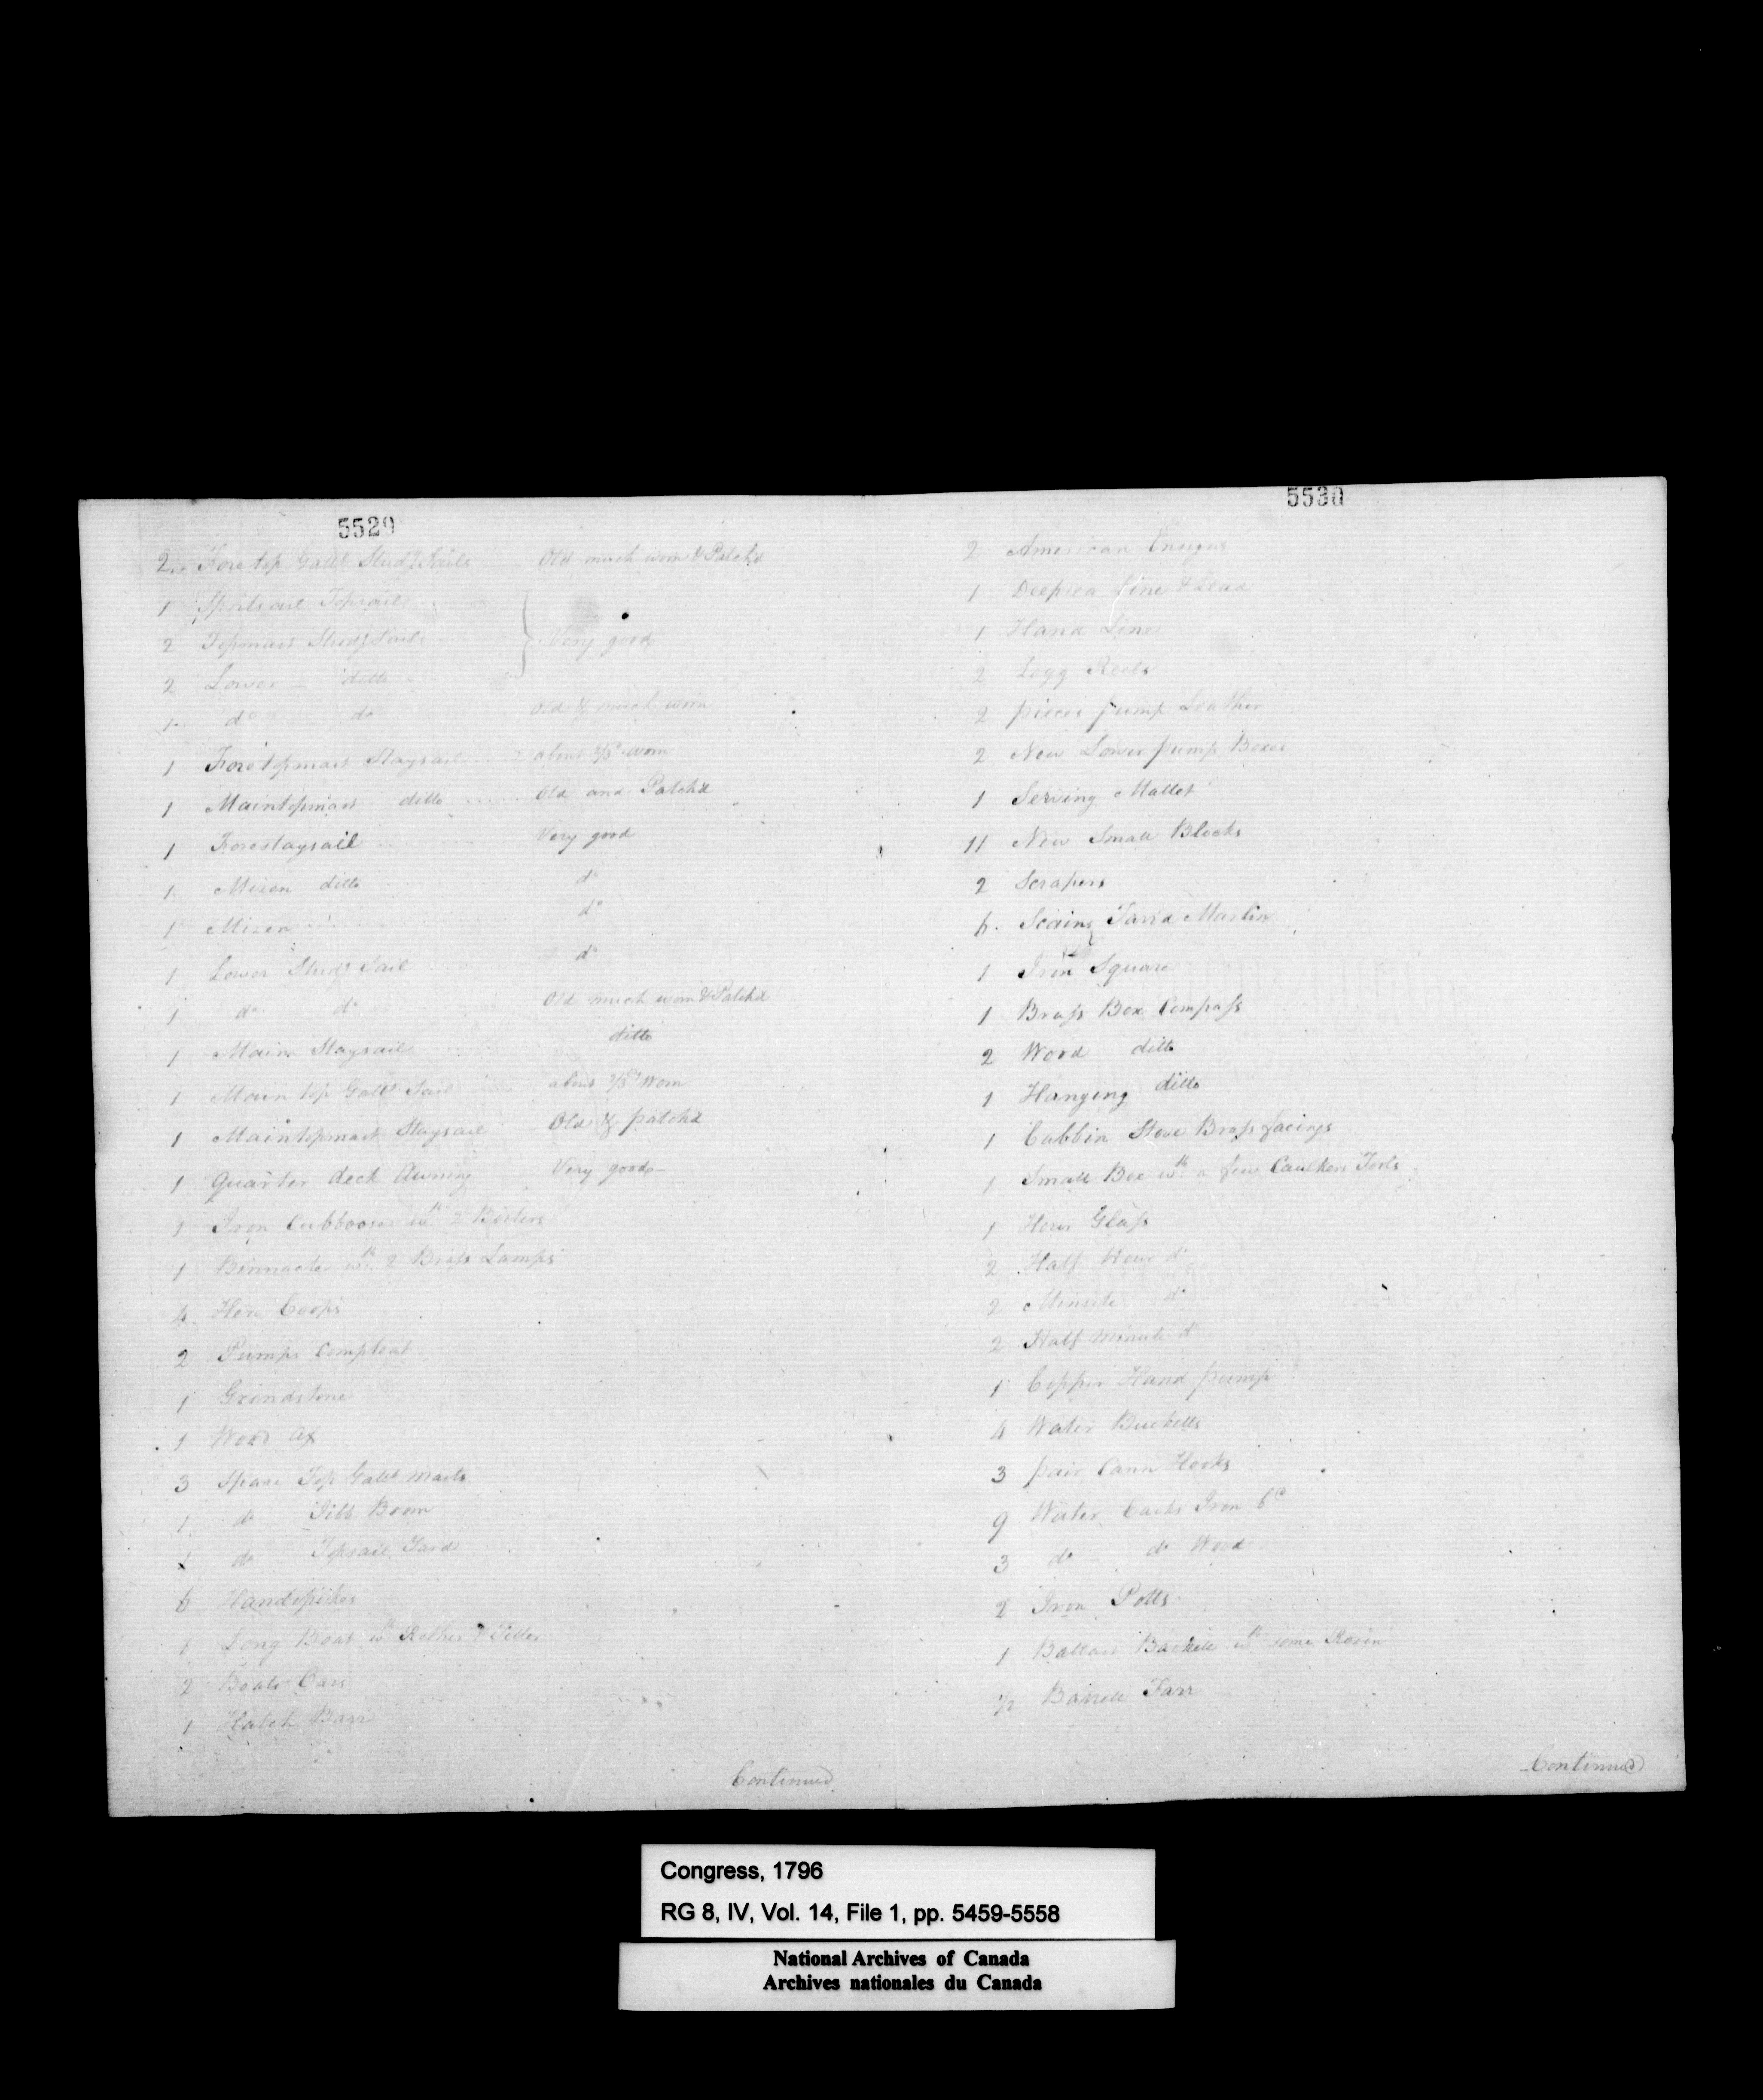 5529
2 Fore top Gallt Studg Sails Old much worn & Patch'd
1 Spritsail Topsail
2 Topmast Studg Sails Very good
2 Lower ditto
1 do do Old & much worn
1 Foretopmast Staysail about 2/3d worn
1 Maintopmast ditto Old and Patch'd
1 Forestaysail Very good
1 Mizen ditto do
1 Mizen do
1 Lower Studg Sail do
1 do do Old much worn & Patch'd
1 Main Staysail ditto
1 Main top Gallt Sail about 2/3d Worn
1 Maintopmast Staysail Old & patch'd
1 Quarter deck Awning Very good
1 Iron Cubboose wth 2 Boilers
1 Binnacle wth 2 Brass Lamps
4 Hen Coops
2 Pumps Compleat
1 Grindstone
1 Wood Ax
3 Spare Top Gallt Masts
1 do Jibb Boom
1 do Topsail Yard
6 Handspikes
1 Long Boat wth Rother & Tiller
2 Boats Oars
1 Hatch Barr
Continued
5530
2 American Ensigns
1 Deepsea Line & Lead
1 Hand Line
2 Logg Reels
2 pieces pump Leather
2 New Lower pump Boxes
1 Serving Mallet
11 New Small Blocks
2 Scrapers
6 Scains Tarr'd Marlin
1 Iron Square
1 Brass Box Compass
2 Wood ditto
1 Hanging ditto
1 Cabbin Stove Brass facings
1 Small Box wth a few Caulkers Tools
1 Hour Glass
2 Half Hour do
2 Minute do
2 Half minute do
1 Copper Hand pump
4 Water Bucketts
3 pair Cann Hooks
9 Water Casks Iron Bd
3 do do Wood
2 Iron Potts
1 Ballast Baskett wth some Rozin
1/2 Barrell Tarr
Continued
Congress, 1796
RG 8, IV, Vol. 14, File 1, pp. 5459-5558
National Archives of Canada
Archives nationales du Canada